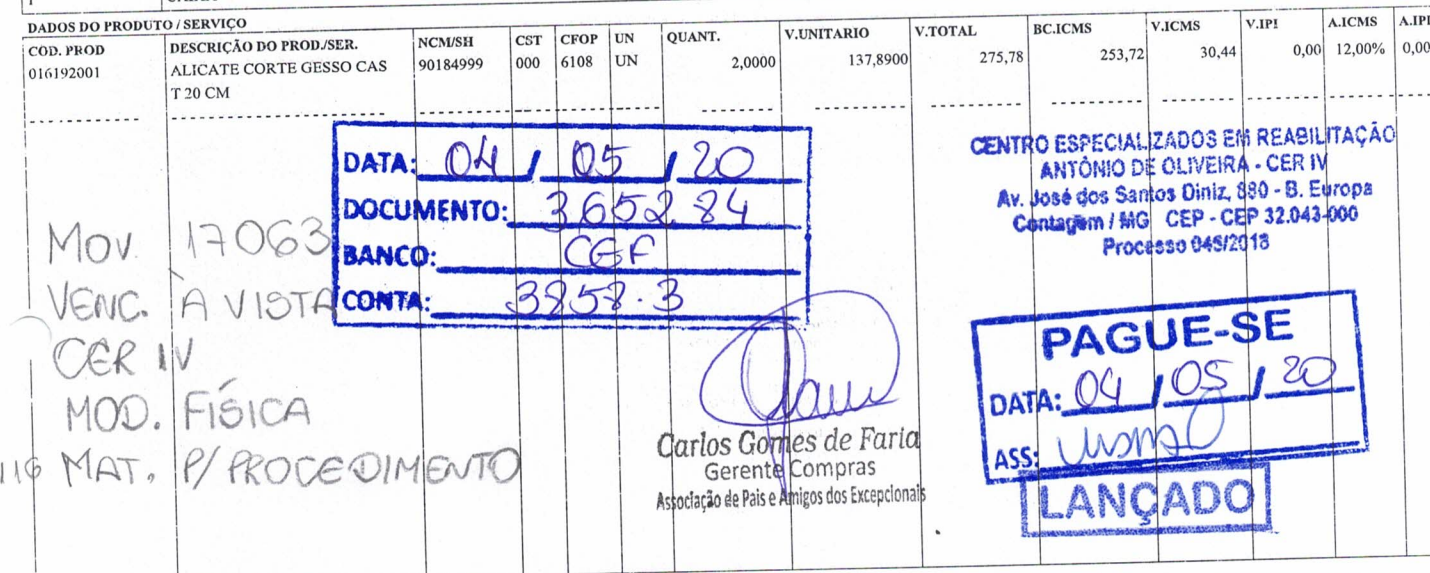 DADOS DO PRODUTO / SERVIÇO
COD. PROD DESCRIÇÃO DO PROD./SER. NCM/SH CST CFOP UN QUANT. V.UNITARIO V.TOTAL BC.ICMS V.ICMS V.IPI A.ICMS A.IPI
016192001 ALICATE CORTE GESSO CAS 90184999 000 6108 UN 2,0000 137,8900 275,78 253,72 30,44 0,00 12,00% 0,00
T 20 CM
DATA: 04 / 05 / 20
DOCUMENTO: 365284
BANCO: CEF
CONTA: 3858-3
CENTRO ESPECIALIZADOS EM REABILITAÇÃO
ANTÔNIO DE OLIVEIRA - CER IV
Av. José dos Santos Diniz, 880 - B. Europa
Contagem / MG CEP - CEP 32.043-000
Processo 045/2018
MOV. 17063
VENC. À VISTA
CER IV
MOD. FÍSICA
116 MAT. P/ PROCEDIMENTO
Carlos Gomes de Faria
Gerente Compras
Associação de Pais e Amigos dos Excepcionais
PAGUE-SE
DATA: 04 / 05 / 20
ASS:
LANÇADO